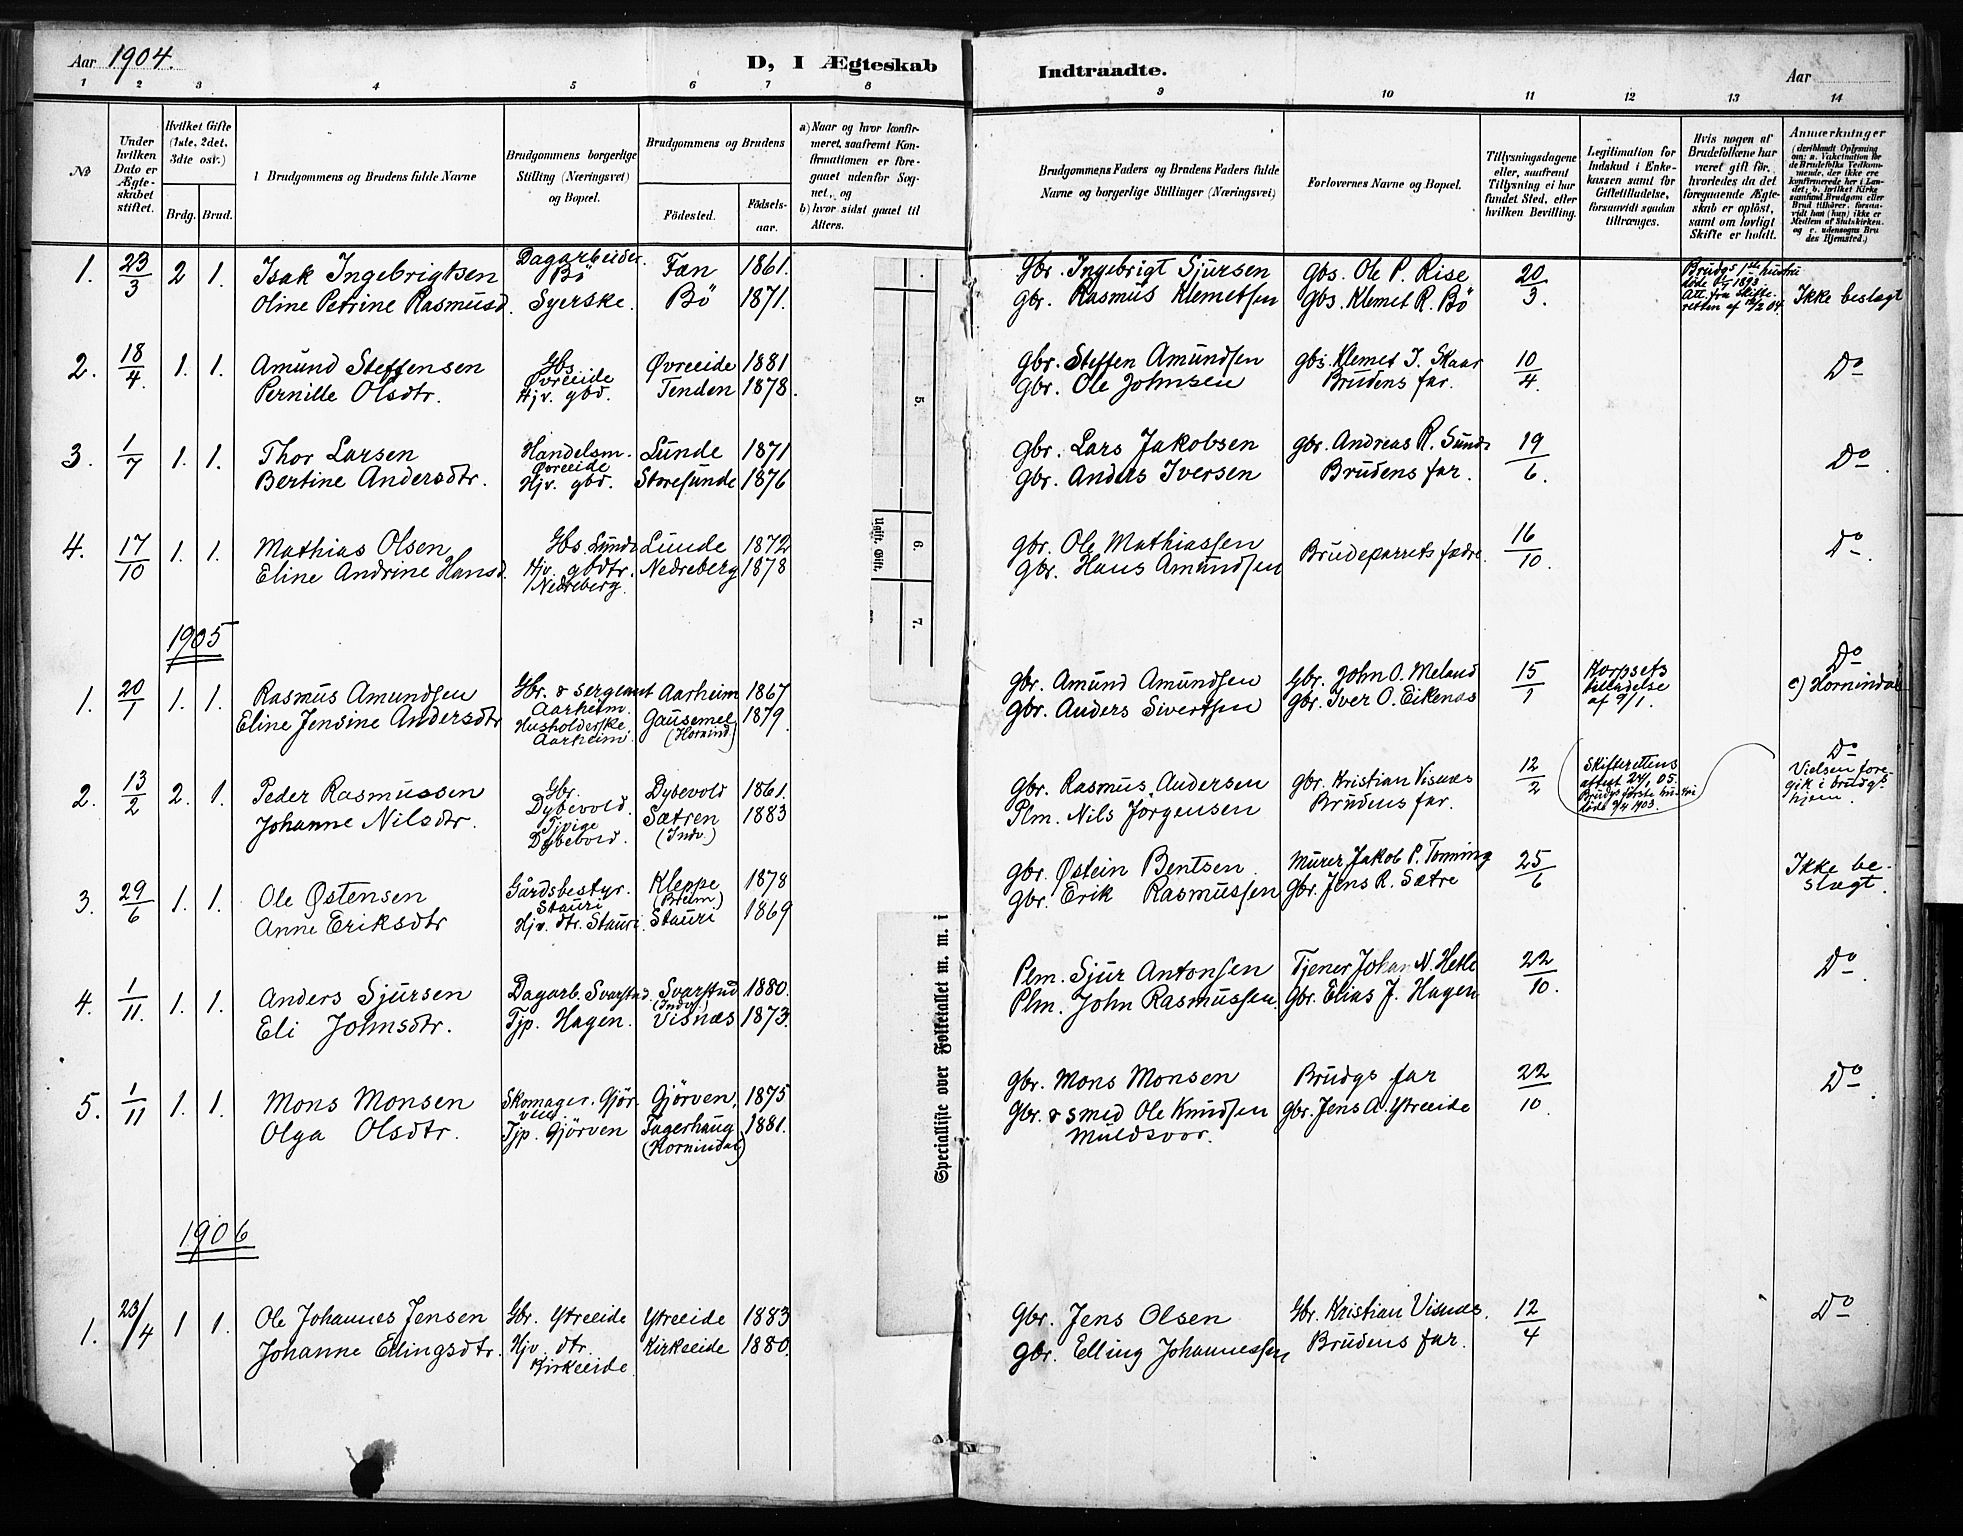 Aar 1904.
D, I Ægteskab
Indtraadte.
Aar
1 2 3 4 5 6 7 8 9 10 11 12 13 14
No
Under hvilken Dato er Ægteskabet stiftet.
Hvilket Gifte (1ste, 2det, 3dte osv.)
Brdg. Brud.
Brudgommens og Brudens fulde Navne
Brudgommens borgerlige Stilling (Næringsvei) og Bopæl.
Brudgommens og Brudens
Fødested.
Fødselsaar.
a) Naar og hvor konfirmeret, saafremt Konfirmationen er foregaaet udenfor Sognet, og
b) hvor sidst gaaet til Alters.
Brudgommens Faders og Brudens Faders fulde Navne og borgerlige Stillinger (Næringsvei)
Forlovernes Navne og Bopæl.
Tillysningsdagene eller, saafremt Tillysning ei har fundet Sted, efter hvilken Bevilling.
Legitimation for Indskud i Enkekassen samt for Giftetilladelse, forsaavidt saadan tiltrænges.
Hvis nogen af Brudefolkene har været gift før, hvorledes da det foregaaende Ægteskab er opløst, samt om lovligt Skifte er holdt.
Anmærkninger
(deriblandt Oplysning om: a. Vakcination for de Brudefolks Vedkommende, der ikke ere konfirmerede her i Landet; b. hvilket Kirkesamfund Brudgom eller Brud tilhører, forsaavidt han (hun) ikke er Medlem af Statskirken, og c. udensogns Brudes Hjemsted.)
1. 23/3 2 1. Isak Ingebrigtsen Dagarbeider Bö Fæn 1861. Gbr. Ingebrigt Sjursen Gbs. Ole P. Rise 20/3.
Oline Petrine Rasmusd. Syerske. Bö 1871. Gbr. Rasmus Klemetsen Gbs. Klemet R. Bö
Brudgs 1ste hustru
döde 1893
Att. fra skifteretten af 04.
Ikke beslægt
2. 18/4. 1. 1. Amund Steffensen Gbs. Øvreeide Øvreeide 1881 Gbr. Steffen Amundsen Gbs. Klemet J. Skaar 10/4. Do
Pernille Olsdtr. Hjv. gbd. Tenden 1878. Gbr. Ole Johnsen Brudens far.
3. 1/7 1. 1. Thor Larsen Handelsm. Øvreeide Lunde 1871 Gbr. Lars Jakobsen Gbr. Andreas R. Sunde 19/6. Do.
Bertine Andersdtr. Hjv. gbd. Storesunde 1876 Gbr. Anders Iversen Brudens far.
4. 17/10 1. 1. Mathias Olsen Gbs. Lunde Lunde 1872 Gbr. Ole Mathiassen Brudeparrets fædre. 16/10. Do.
Eline Andrine Hansd. Hjv. gbdtr. Nedreberg. Nedreberg 1878 Gbr. Hans Amundsen
1905
1. 20/1 1. 1. Rasmus Amundsen Gbr. & sergeant Aarheim. Aarheim 1867 Gbr. Amund Amundsen Gbr. John O. Meland 15/1 Korpsets tilladelse af 9/1. Do
Eline Jensine Andersdtr Husholderske Aarheim. Gausemel (Hornind) 1879. Gbr. Anders Sivertsen Gbr. Iver O. Eikenæs c) Hornindal
2. 13/2 2. 1. Peder Rasmussen Gbr. Dybevold. Dybevold 1861. Gbr. Rasmus Andersen Gbr. Kristian Visnæs 12/2 Do
Johanne Nilsdtr. Tjpige Dybevold. Sætren (Indv.) 1883 Plm. Nils Jørgensen Brudens far.
Skifterettens attest 24/1 05.
Brudgs første hustru döde 1903.
Vielsen foregik i brudgs hjem.
3. 29/6 1. 1. Ole Østensen Gårdsbestyr. Stauri Kleppe (Breim) 1878 Gbr. Østein Bentsen Murer Jakob P. Tomning 25/6 Ikke beslægt.
Anne Eriksdtr Hjv. dtr. Stauri Stauri 1869 Gbr. Erik Rasmussen Gbr. Jens R. Sætre
4. 1/11. 1. 1. Anders Sjursen Dagarb. Svarstad. Svarstad (Indv.) 1880. Plm. Sjur Antonsen Tjener Johan N. Hetle 22/10. Do.
Eli Johnsdtr. Tjp. Hagen. Visnæs 1873. Plm. John Rasmussen. Gbr. Elias J. Hagen
5. 1/11 1. 1. Mons Monsen Skomager. Gjörven Gjörven. 1875 Gbr. Mons Monsen Brudgs far 22/10. Do
Olga Olsdtr. Tjp. Gjörven Fagerhaug (Hornindal) 1881. Gbr. & smed Ole Knudsen Muldsvor. Gbr. Jens A. Ytreeide
1906
1. 23/4 1 1. Ole Johannes Jensen Gbr. Ytreeide Ytreeide 1883 Gbr. Jens Olsen Gbr. Kristian Visnæs. 12/4 Do
Johanne Ellingsdtr. Hjv. dtr. Kirkeeide Kirkeeide 1880. Gbr. Elling Johannessen Brudens far.
5.
6.
Ugift. Gift.
7.
Specialliste over Folketallet m. m. i